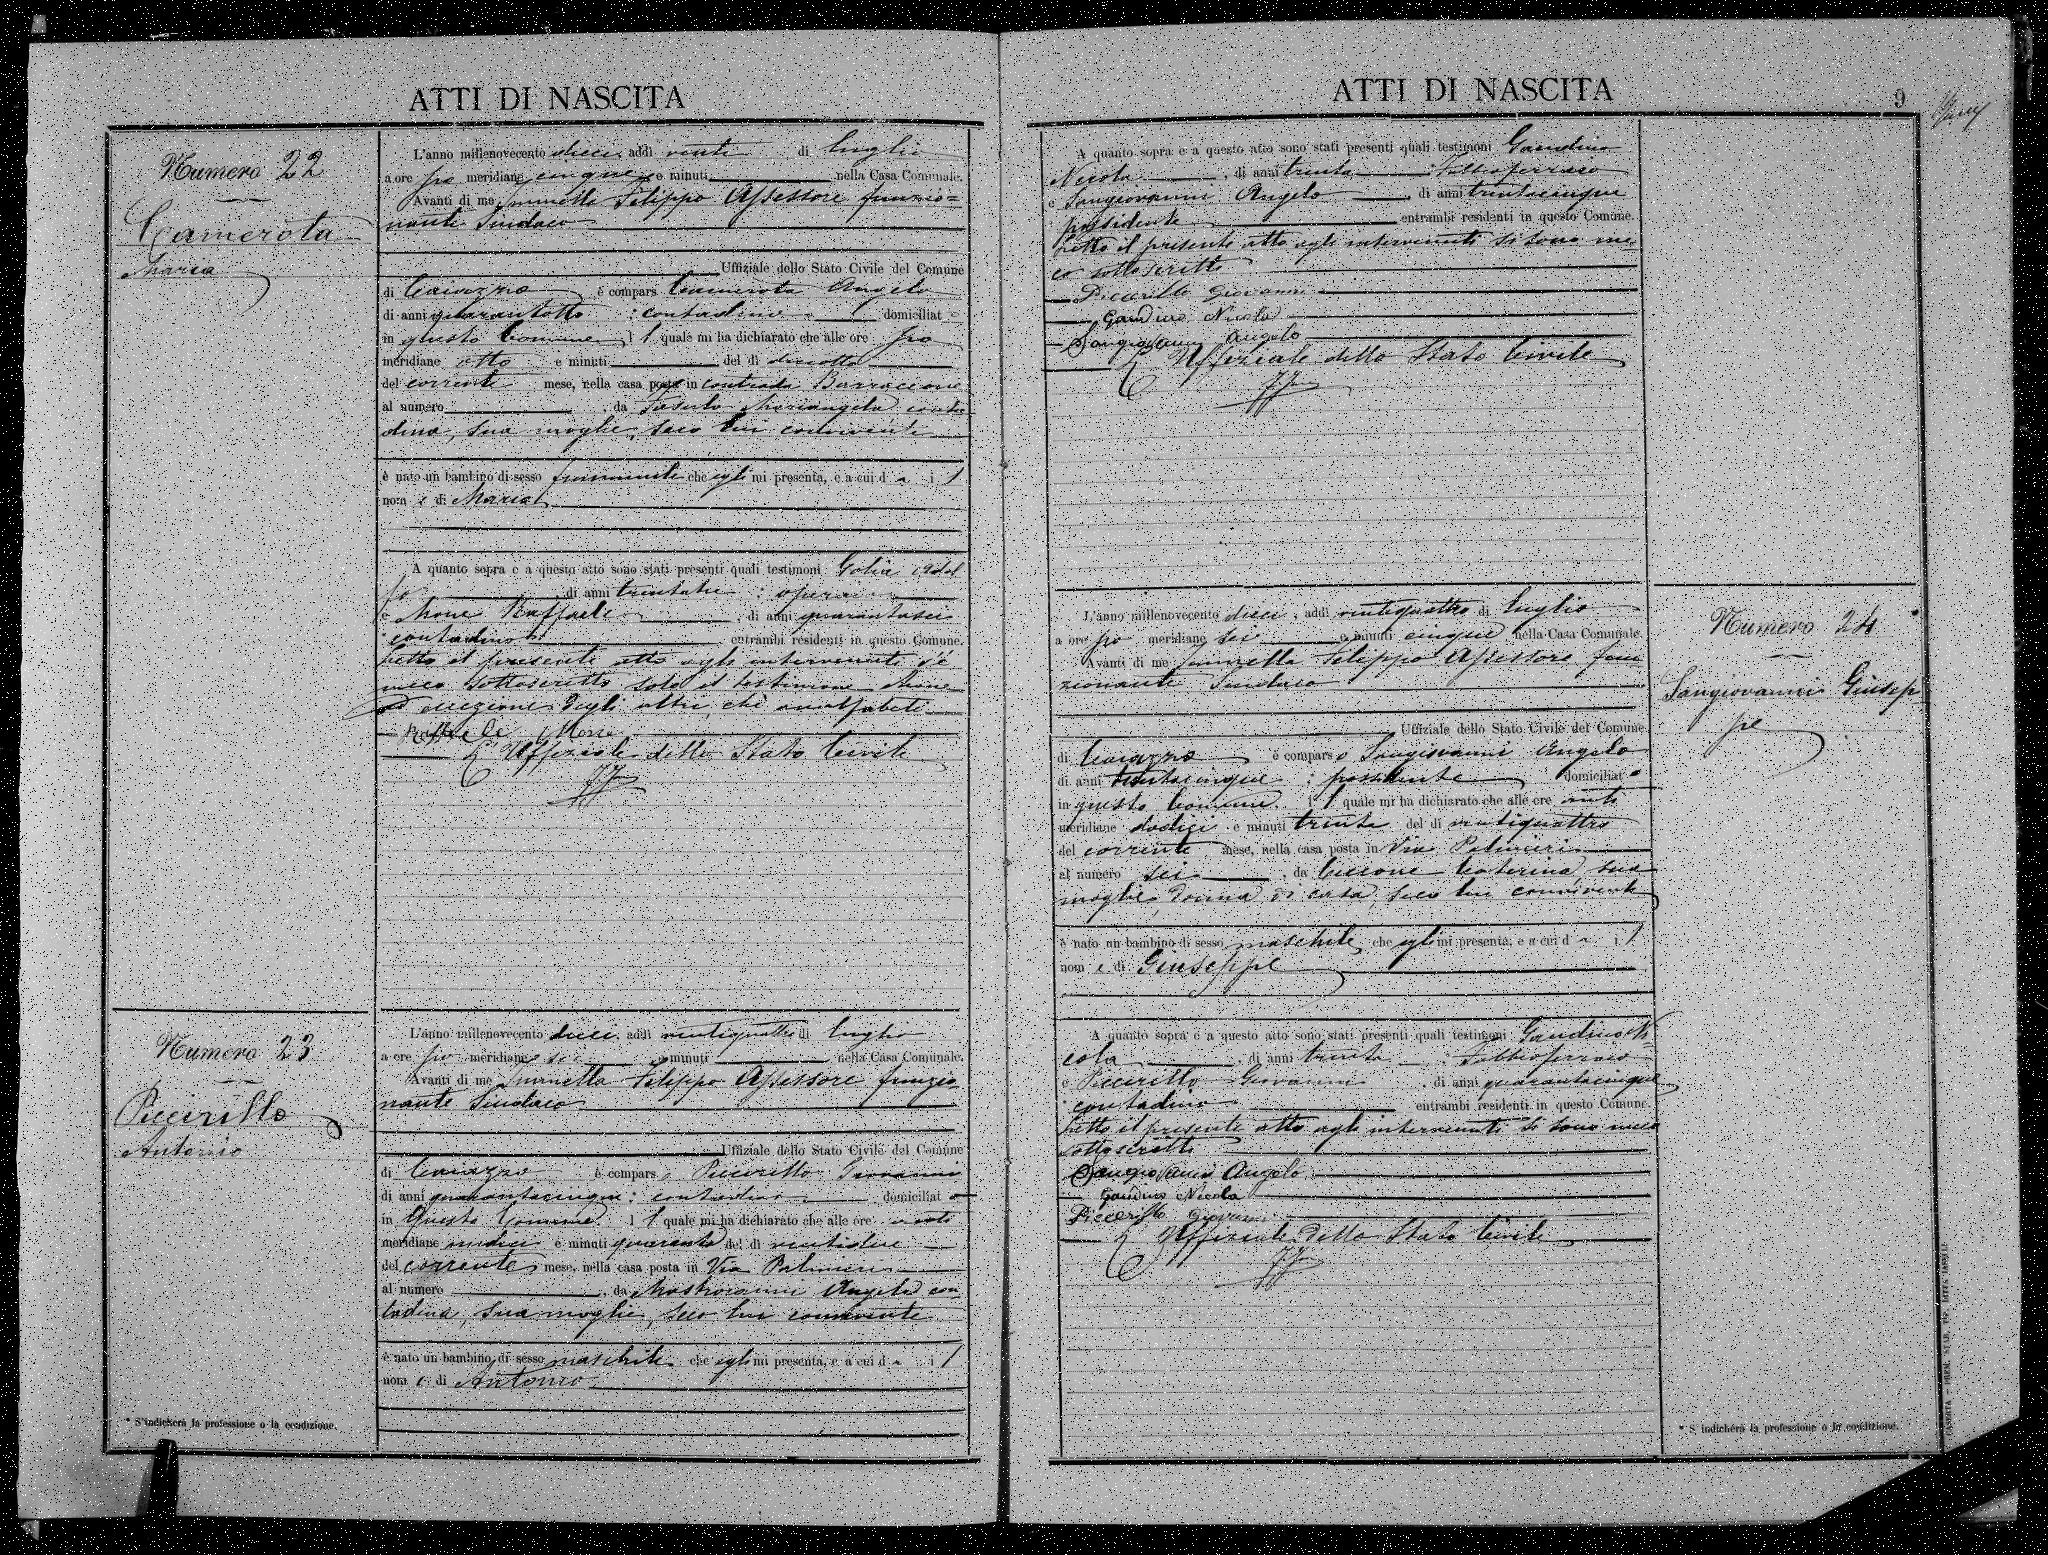 ATTI DI NASCITA
Numero 22
Camerota
Maria
L'anno millenovecento dieci, addì venti di Luglio
a ore po meridiane cinque e minuti nella Casa Comunale.
Avanti di me Iannella Filippo Assessore funzio=
nante Sindaco
Uffiziale dello Stato Civile del Comune
di Caiazzo è compars Camerota Angelo
di anni quarantotto : contadino domiciliato
in questo Comune, il quale mi ha dichiarato che alle ore po
meridiane otto e minuti del dì diciotto
del corrente mese, nella casa posta in contrada Barraccone
al numero , da Fasulo Mariangela conta
dina, sua moglie, seco lui convivente
è nato un bambino di sesso femminile che egli mi presenta, e a cui dà il
nome di Maria
A quanto sopra e a questo atto sono stati presenti quali testimoni Golia Adol
fo di anni trentatre : operaio
e Mone Raffaele , di anni quarantasei
contadino entrambi residenti in questo Comune.
Letto il presente atto agli intervenuti s'è
meco sottoscritto solo il testimone Mone
ad eccezione degli altri, chè analfabeti
Raffaele Mone
L'Uffiziale dello Stato Civile
Numero 23
Piccirillo
Antonio
L'anno millenovecento dieci, addì ventiquattro di Luglio
a ore po meridiane sei e minuti nella Casa Comunale.
Avanti di me Iannella Filippo Assessore funzio
nante Sindaco
Uffiziale dello Stato Civile del Comune
di Caiazzo è comparso Piccirillo Giovanni
di anni quarantacinque : contadino domiciliato
in questo Comune, il quale mi ha dichiarato che alle ore anti
meridiane undici e minuti quaranta del dì ventidue
del corrente mese, nella casa posta in Via Palmieri
al numero , da Mastroianni Angela con
tadina, sua moglie, seco lui convivente
è nato un bambino di sesso maschile che egli mi presenta, e a cui dà il
nome di Antonio
* S'indicherà la professione o la condizione.
ATTI DI NASCITA
9
A quanto sopra e a questo atto sono stati presenti quali testimoni Gaudino
Nicola , di anni trenta : Fabbroferraio
e Sangiovanni Angelo , di anni trentacinque
possidente entrambi residenti in questo Comune.
Letto il presente atto agli intervenuti si sono me
co sottoscritti
Piccirillo Giovanni
Gaudino Nicola
Sangiovanni Angelo
L'Uffiziale dello Stato Civile
Numero 24
Sangiovanni Giusep
pe
L'anno millenovecento dieci, addì ventiquattro di Luglio
a ore po meridiane sei e minuti cinque nella Casa Comunale.
Avanti di me Iannella Filippo Assessore fun
zionante Sindaco
Uffiziale dello Stato Civile del Comune
di Caiazzo è comparso Sangiovanni Angelo
di anni trentacinque : possidente domiciliato
in questo Comune, il quale mi ha dichiarato che alle ore anti
meridiane dodici e minuti trenta del dì ventiquattro
del corrente mese, nella casa posta in Via Palmieri
al numero sei , da Cuccone Caterina sua
moglie, donna di casa, seco lui convivente
è nato un bambino di sesso maschile che egli mi presenta, e a cui dà il
nome di Giuseppe
A quanto sopra e a questo atto sono stati presenti quali testimoni Gaudino Ni
cola , di anni trenta : Fabbroferraio
e Piccirillo Giovanni , di anni quarantacinque
contadino entrambi residenti in questo Comune.
Letto il presente atto agli intervenuti si sono meco
sottoscritti
Sangiovanni Angelo
Gaudino Nicola
Piccirillo Giovanni
L'Uffiziale dello Stato Civile
* S'indicherà la professione o la condizione.